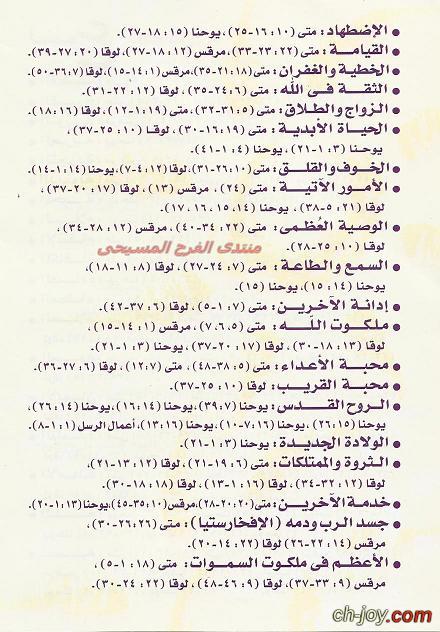 ● الإضطهاد: متى (١٠: ١٦-٢٥)، يوحنا (١٥: ١٨-٢٧).
● القيامة: متى (٢٢: ٢٣-٣٣)، مرقس (١٢: ١٨-٢٧)، لوقا (٢٠: ٢٧-٣٩).
● الخطية والغفران: متى (١٨: ٢١-٣٥)، مرقس (١٤: ١-١٥)، لوقا (٧: ٣٦-٥٠).
● الثقة فى الله: متى (٦: ٢٤-٣٥)، لوقا (١٢: ٢٢-٣١).
● الزواج والطلاق: متى (٥: ٣١-٣٢)، متى (١٩: ١-١٢)، لوقا (١٦: ١٨).
● الحياة الأبدية: متى (١٩: ١٦-٣٠)، لوقا (١٠: ٢٥-٣٧)،
يوحنا (٣: ١-٢١)، يوحنا (٤: ١-٤١).
● الخوف والقلق: متى (١٠: ٢٦-٣١)، لوقا (١٢: ٤-٧)، يوحنا (١٤: ١-١٤).
● الأمور الآتية: متى (٢٤)، مرقس (١٣)، لوقا (١٧: ٢٠-٣٧)،
لوقا (٢١: ٥-٣٨)، يوحنا (١٤، ١٥، ١٦، ١٧).
● الوصية العُظمى: متى (٢٢: ٣٤-٤٠)، مرقس (١٢: ٢٨-٣٤)،
لوقا (١٠: ٢٥-٢٨).
منتدى الفرح المسيحى
● السمع والطاعة: متى (٧: ٢٤-٢٧)، لوقا (٨: ١١-١٨)،
يوحنا (١٤: ١٥)، يوحنا (١٥).
● إدانة الآخرين: متى (٧: ١-٥)، لوقا (٦: ٣٧-٤٢).
● ملكوت الله: متى (٥، ٦، ٧)، مرقس (١: ١٤-١٥)،
لوقا (١٣: ١٨-٣٠)، لوقا (١٧: ٢٠-٣٧)، يوحنا (٣: ١-٢١).
● محبة الأعداء: متى (٥: ٣٨-٤٨)، متى (٧: ١٢)، لوقا (٦: ٢٧-٣٦).
● محبة القريب: لوقا (١٠: ٢٥-٣٧).
● الروح القدس: يوحنا (٧: ٣٩)، يوحنا (١٤: ١٦)، يوحنا (١٤: ٢٦)،
يوحنا (١٥: ٢٦)، يوحنا (١٦: ٧-١٠)، يوحنا (١٦: ١٣)، أعمال الرسل (١: ١-٨).
● الولادة الجديدة: يوحنا (٣: ١-٢١).
● الثروة والممتلكات: متى (٦: ١٩-٢١)، لوقا (١٢: ١٣-٢١)،
لوقا (١٢: ٣٢-٣٤)، لوقا (١٦: ١-١٣)، لوقا (١٨: ١٨-٣٠).
● خدمة الآخرين: متى (٢٠: ٢٠-٢٨)، مرقس (١٠: ٣٥-٤٥)، يوحنا (١٣: ١-٢٠).
● جسد الرب ودمه (الإفخارستيا): متى (٢٦: ٢٦-٣٠)،
مرقس (١٤: ٢٢-٢٦) لوقا (٢٢: ١٤-٢٠).
● الأعظم فى ملكوت السموات: متى (١٨: ١-٥)،
مرقس (٩: ٣٣-٣٧)، لوقا (٩: ٤٦-٤٨)، لوقا (٢٢: ٢٤-٣٠).
ch-joy.com